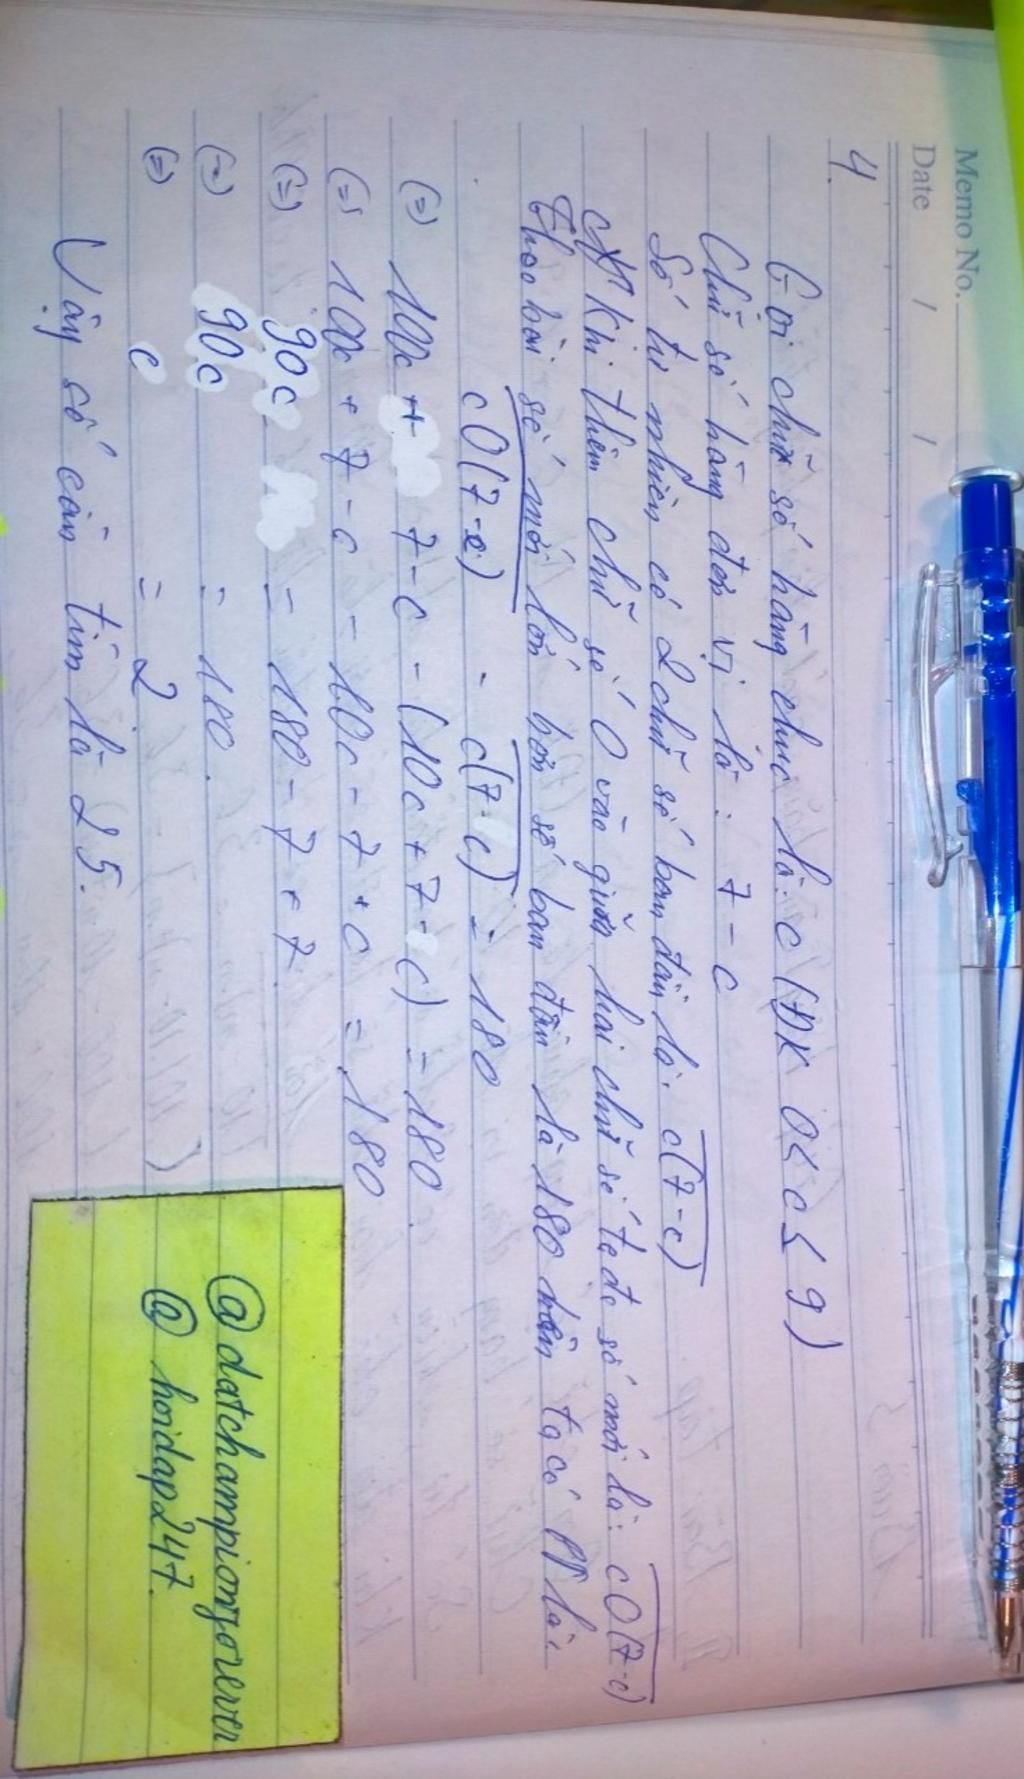 Memo No.
Date / /
4.
Gọi chữ số hàng chục là: c (ĐK 0 < c ≤ 9)
Chữ số hàng đơn vị là: 7 - c
Số tự nhiên có 2 chữ số ban đầu là: c(7-c)
Khi thêm chữ số 0 vào giữa hai chữ số ta đc số mới là: c0(7-c)
Theo bài số mới lớn hơn số ban đầu là 180 nên ta có PT là:
c0(7-c) - c(7-c) = 180
(=) 100c + 7-c - (10c + 7-c) = 180
(=) 100c + 7-c - 10c - 7+c = 180
(=) 90c = 180 - 7 + 7
(=) 90c = 180
(=) c = 2
Vậy số cần tìm là 25.
@ datchampionforever
@ hoidap247.